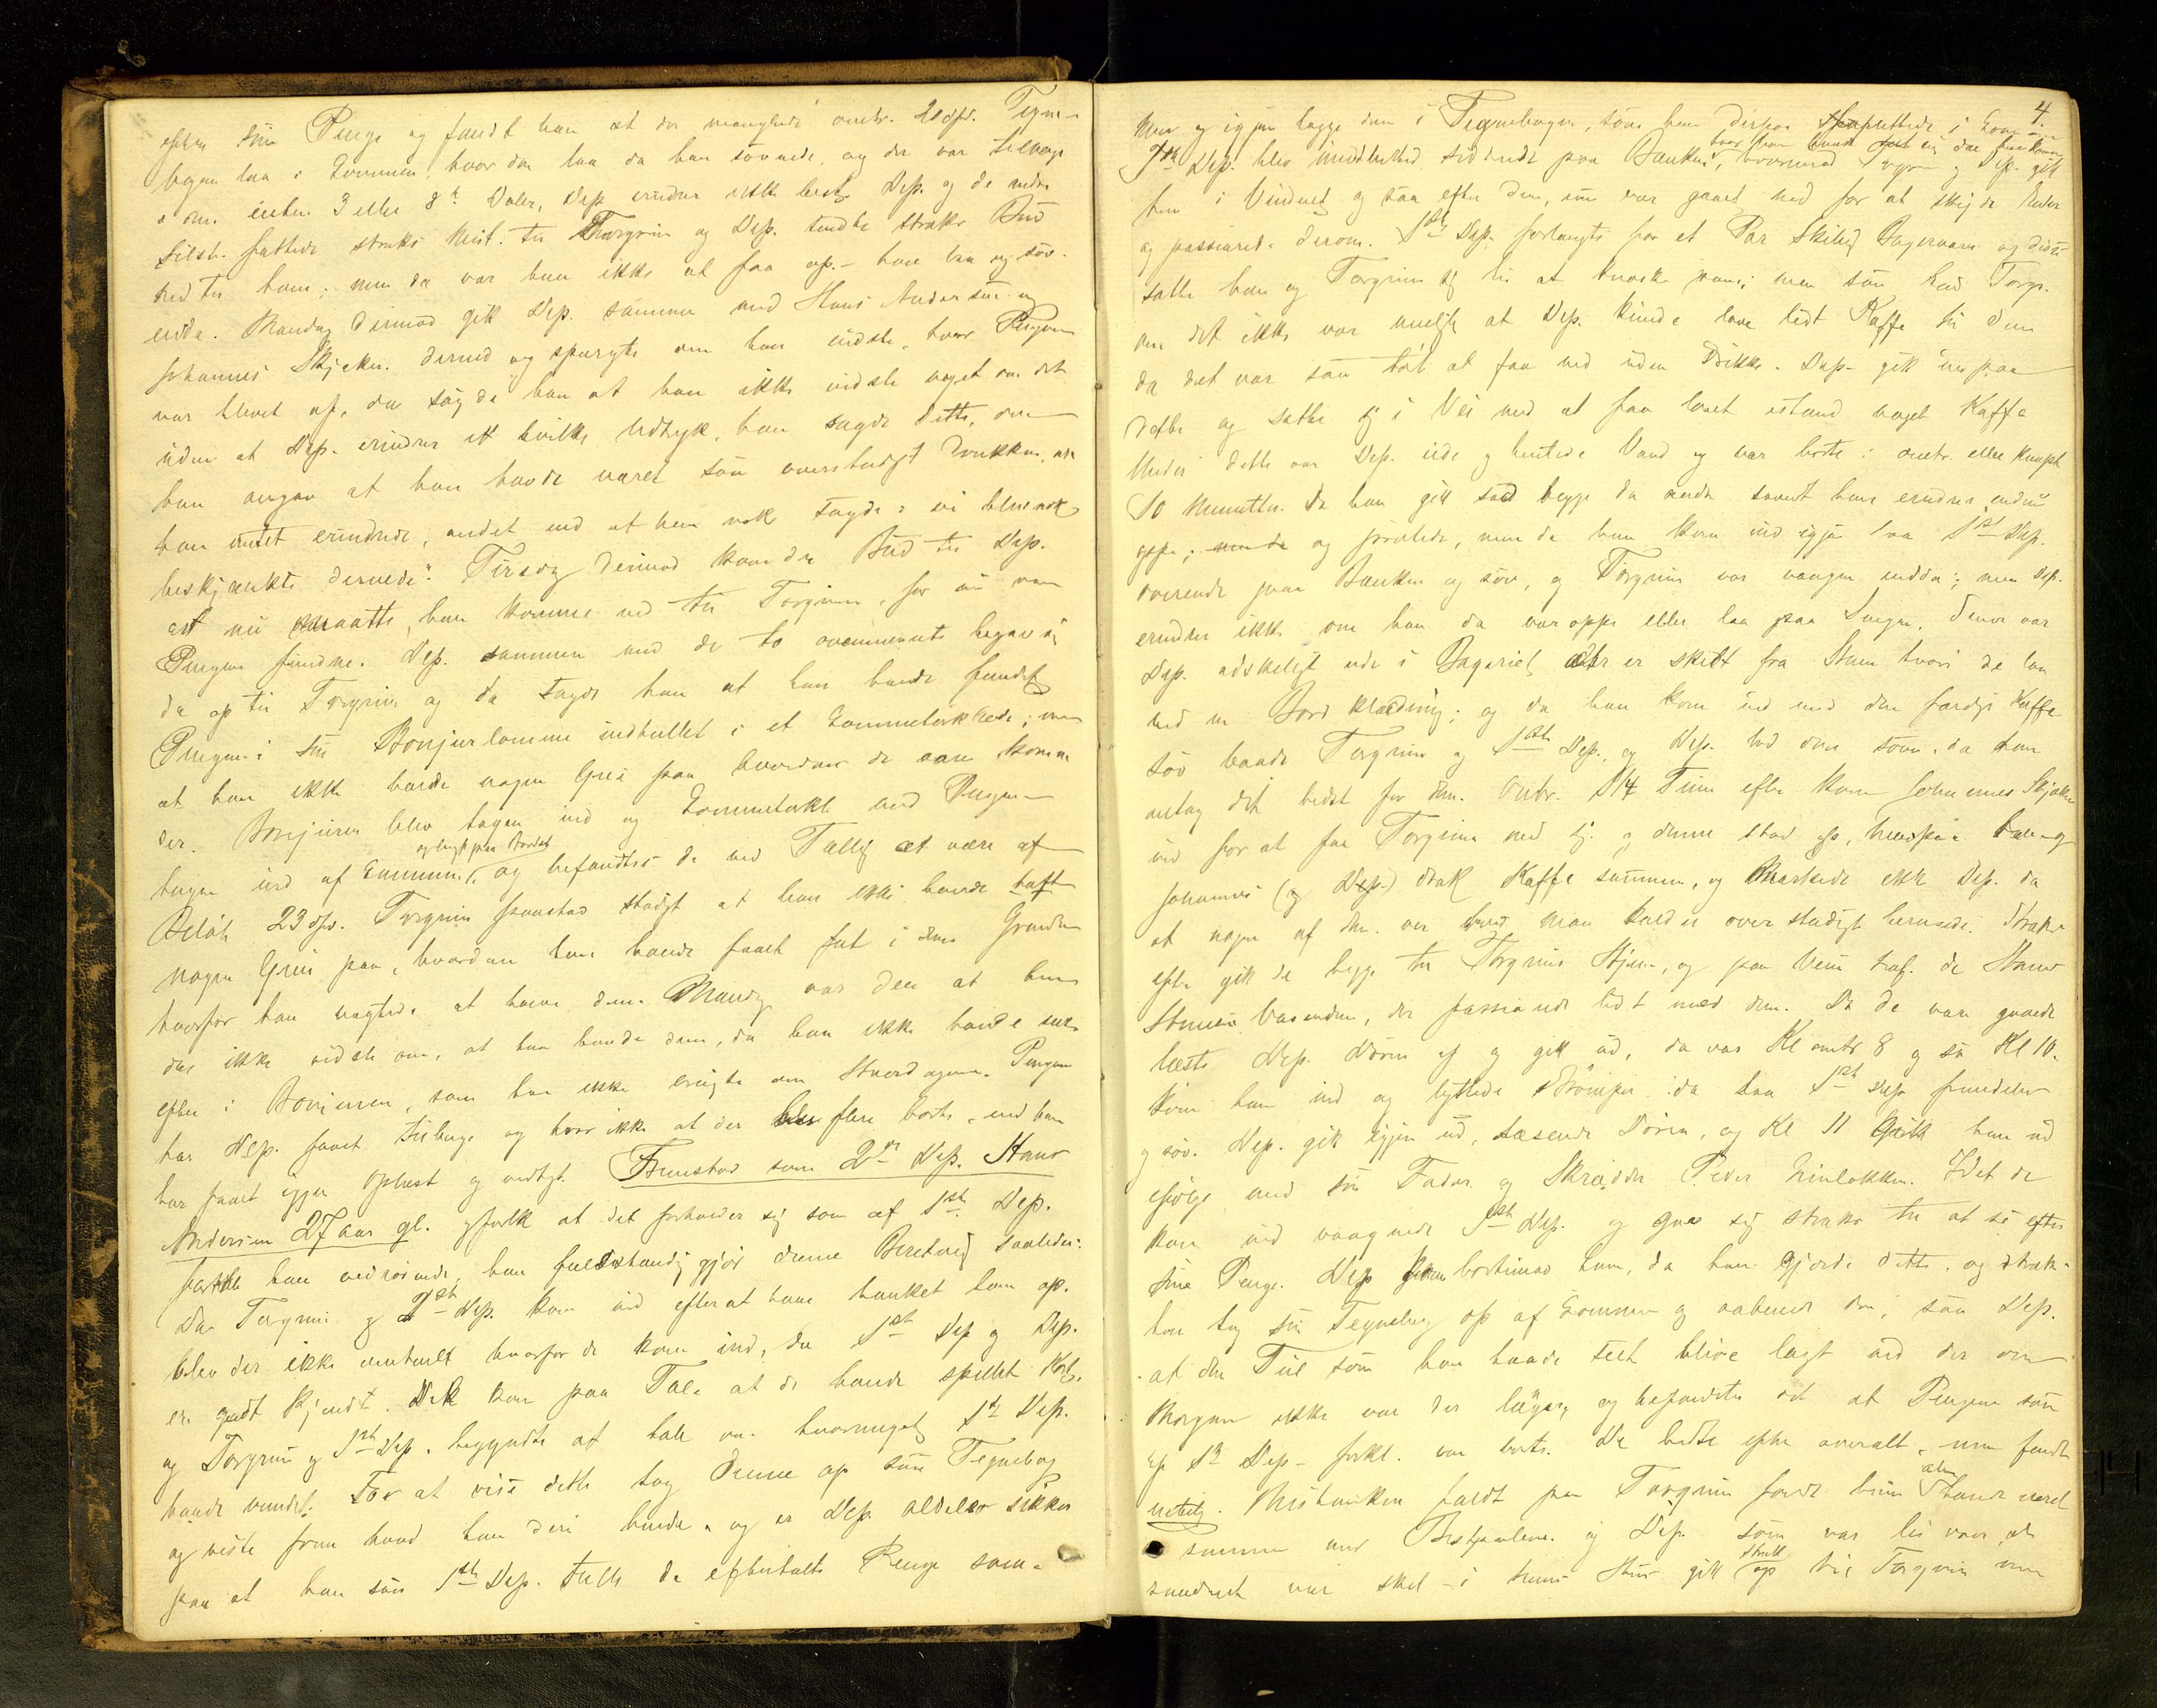 efter sine Penge og fandt han at der manglede omtr. 20 Spd. Tegne-
bogen laa i Lommen, hvor den laa da han sovnede, og der var tilbage
i den enten 3 eller 8te Daler, Dep. erindrer ikke hvilke. Dep. og de andre
Tilst. fattede straks Mist. til Torgrim og Dep. sendte straks Bud
ned til ham; men da var han ikke at faa op. – han laa og sov
endda. Mandag derimod gik Dep. sammen med Hans Andersen og
Johannes Skjaker derned og spurgte om han vidste, hvor Pengene
var blevet af, da sagde han at han ikke vidste noget om det
uden at Dep. erindrer et hvilke Udtryk, han sagde dette, men
han angav at han havde været saa overstadigt drukken, at
han intet erindrede, andet end at han nok sagde: vi blive nok
beskjænkte dernede". Tirsdag derimod kom der Bud til Dep.
at nu maatte han komme ned til Torgrim, for nu var
Pengene fundne. Dep. sammen med de to ovennævnte begav sig
da op til Torgrim og da sagde han at han havde fundet
Pengene i sin Bonjurlomme indhullet i et Lommetørklæde; men
at han ikke havde nogen Greie paa hvordan de vare komne
der. Bonjuren blev tagen ind og Lommetørkl. med Pengene
og lagt paa Bordet
tagen ud af Lommen, og befandtes de ved Tælling at være af
Beløb 23 Spd. Torgrim paastod stadigt at han ikke havde havt
nogen Greie paa, hvordan han havde faaet fat i dem Grunden
hvorfor han nægtede at have dem Mandag var den at han
da ikke vidste om, at han havde dem, da han ikke havde seet
efter i Bonjuren, som han ikke brugte om Hverdagene. Pengene
har Dep. faaet tilbage og tror ikke at der blev flere borte, end han
har faaet igjen Oplæst og vedtaget. Fremstod som 2det Dep. Hans
Andersen 27 aar gl. forkl. at det forholder sig som af 1ste Dep.
forkl. han vedrørende, han fuldstændiggjør denne Beretning saaledes:
Da Torgrim og 1ste Dep. kom ind efter at have banket ham op.
blev der ikke omtalt hvorfor de kom ind, da 1ste Dep og Dep.
er godt kjendt. Det kom paa Tale at de havde spillet Kort,
og Torgrim og 1ste Dep. begyndte at tale om hvormeget 1ste Dep.
havde vundet. For at vise dette tog denne op sin Tegnebog
og viste frem hvad han deri havde, og er Dep. aldeles sikker
paa at han saa 1ste Dep. tælle de efterhaldte Penge sam-
4.
men og igjen lagge dem i Tegnebogen, som han derpaa puttede i Lommen
1ste Dep. blev imidlertid siddende paa Bænken, hvorimod Torgrim og Dep. gik
hen i Vinduet og saa efter dem, som var gaaet ned for at skyde Ender
og passiarede derom. 1ste Dep. forlangte for et Par Skiling Bagervarer og disse
satte han og Torgrim sig til at knaske paa; men saa bad Torgr.
om det ikke var muligt at Dep. kunde lave lidt Kaffe til dem
da det var saa tørt at faa ned uden Drikke. Dep. gik ind paa
dette og satte sig i Vei med at faa lavet istand noget Kaffe
Under dette var Dep. ude og hentede Vand og var borte i omtr. eller knapt
10 Minutter. Da han gik sad begge de andre saavidt han erindrer endnu
oppe; og pratede, men da han kom ind igjen laa 1ste Dep.
overende paa Bænken og sov, og Torgrim var vaagen endda; men Dep.
erindrer ikke om han da var oppe eller laa paa Sengen. Senere var
Dep. adskilligt ude i Bageriet der er skilt fra Stuen hvori de laa
ved en Bordklædning; og da han kom ind med den færdige Kaffe
sov baade Torgrim og 1ste Dep. og Dep. lod dem sove, da han
antog det bedst for dem. Omtr. 1/4 Time efter kom Johannes Skjaker
ind for at faa Torgrim med sig og denne stod op, hvorpaa han og
Johannes (og Dep.) drak Kaffe sammen, og mærkede ikke Dep. da
at nogen af dem var hvad man kalder overstadigt berusede. Straks
efter gik de begge til Torgrims Hjem, og paa Veien traf de Hans
Stuesø Vasenden, der passiarede lidt med dem. Da de vare gaaede
læste Dep. Døren af og gik ud, da var Kl omtr 8 og saa Kl 10.
kom han ind og byttede Strømper: da laa 1ste Dep fremdeles
og sov. Dep. gik igjen ud, læsende Døren, og Kl 11 gik han ind
ifølge med sin Fader og Skrædder Peder Linløkken. Idet de
kom ind vaagnede 1ste Dep. og gav sig straks til at se efter
sine Penge. Dep kom bortimod ham, da han gjorde dette, og straks
han tog sin Tegnebog op af Lommen og aabnede den, saa Dep.
at den Tier som han havde seet blive lagt ned der om
Morgenen ikke var der længer, og befandtes det at Pengene som
af 1ste Dep. forkl. var borte. De ledte efter overalt, men fandt
intet. Mistanken faldt paa Torgrim fordi han alene havde været
sammen med Bestjaalne. og Dep. som var lei over, at
saadant var skel i hans Hus gik straks op til Torgrim men